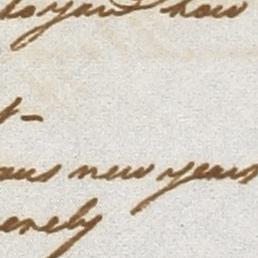 to your how
t-
ous new years
erely